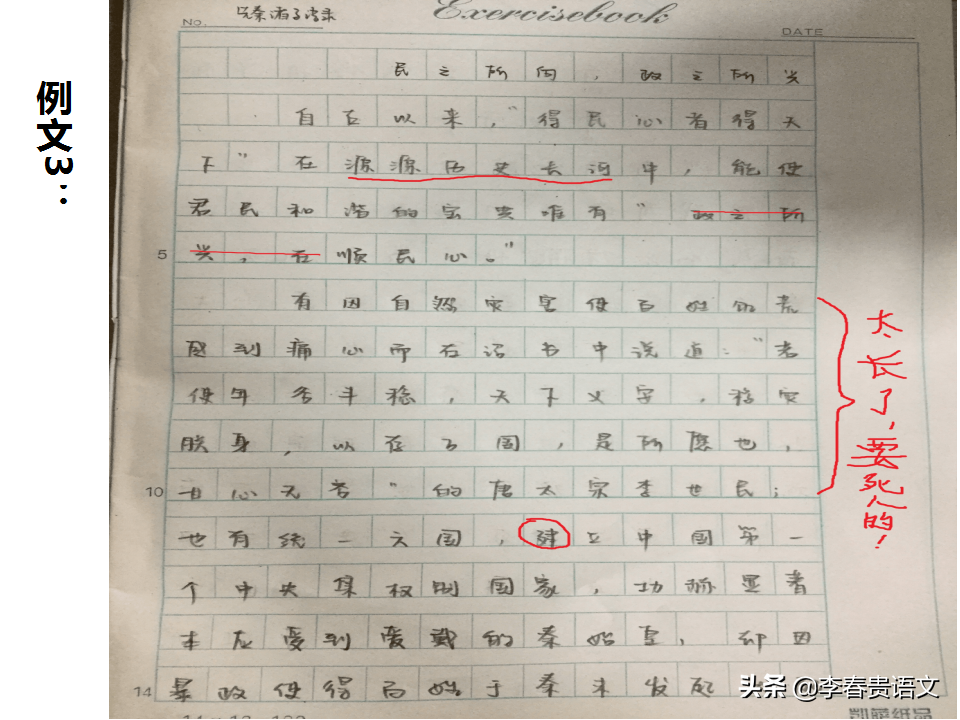 例文3：
Exercisebook
No.
DATE
民之所向，政之所兴
自古以来，“得民心者得天
下”在源源历史长河中，能使
君民和谐的宝贵唯有“政之所
兴，在顺民心。”
5
有因自然灾害使百姓饥荒
感到痛心而在诏书中说道：“若
使年谷丰稔，天下乂安，移灾
朕身，以存万国，是所愿也，
10
甘心无吝”的唐太宗李世民；
也有统一六国，建立中国第一
个中央集权制国家，功称显著
本应受到爱戴的秦始皇，却因
14
暴政使得百姓于秦末发起
太长了，要死人的！
头条 @李春贵语文